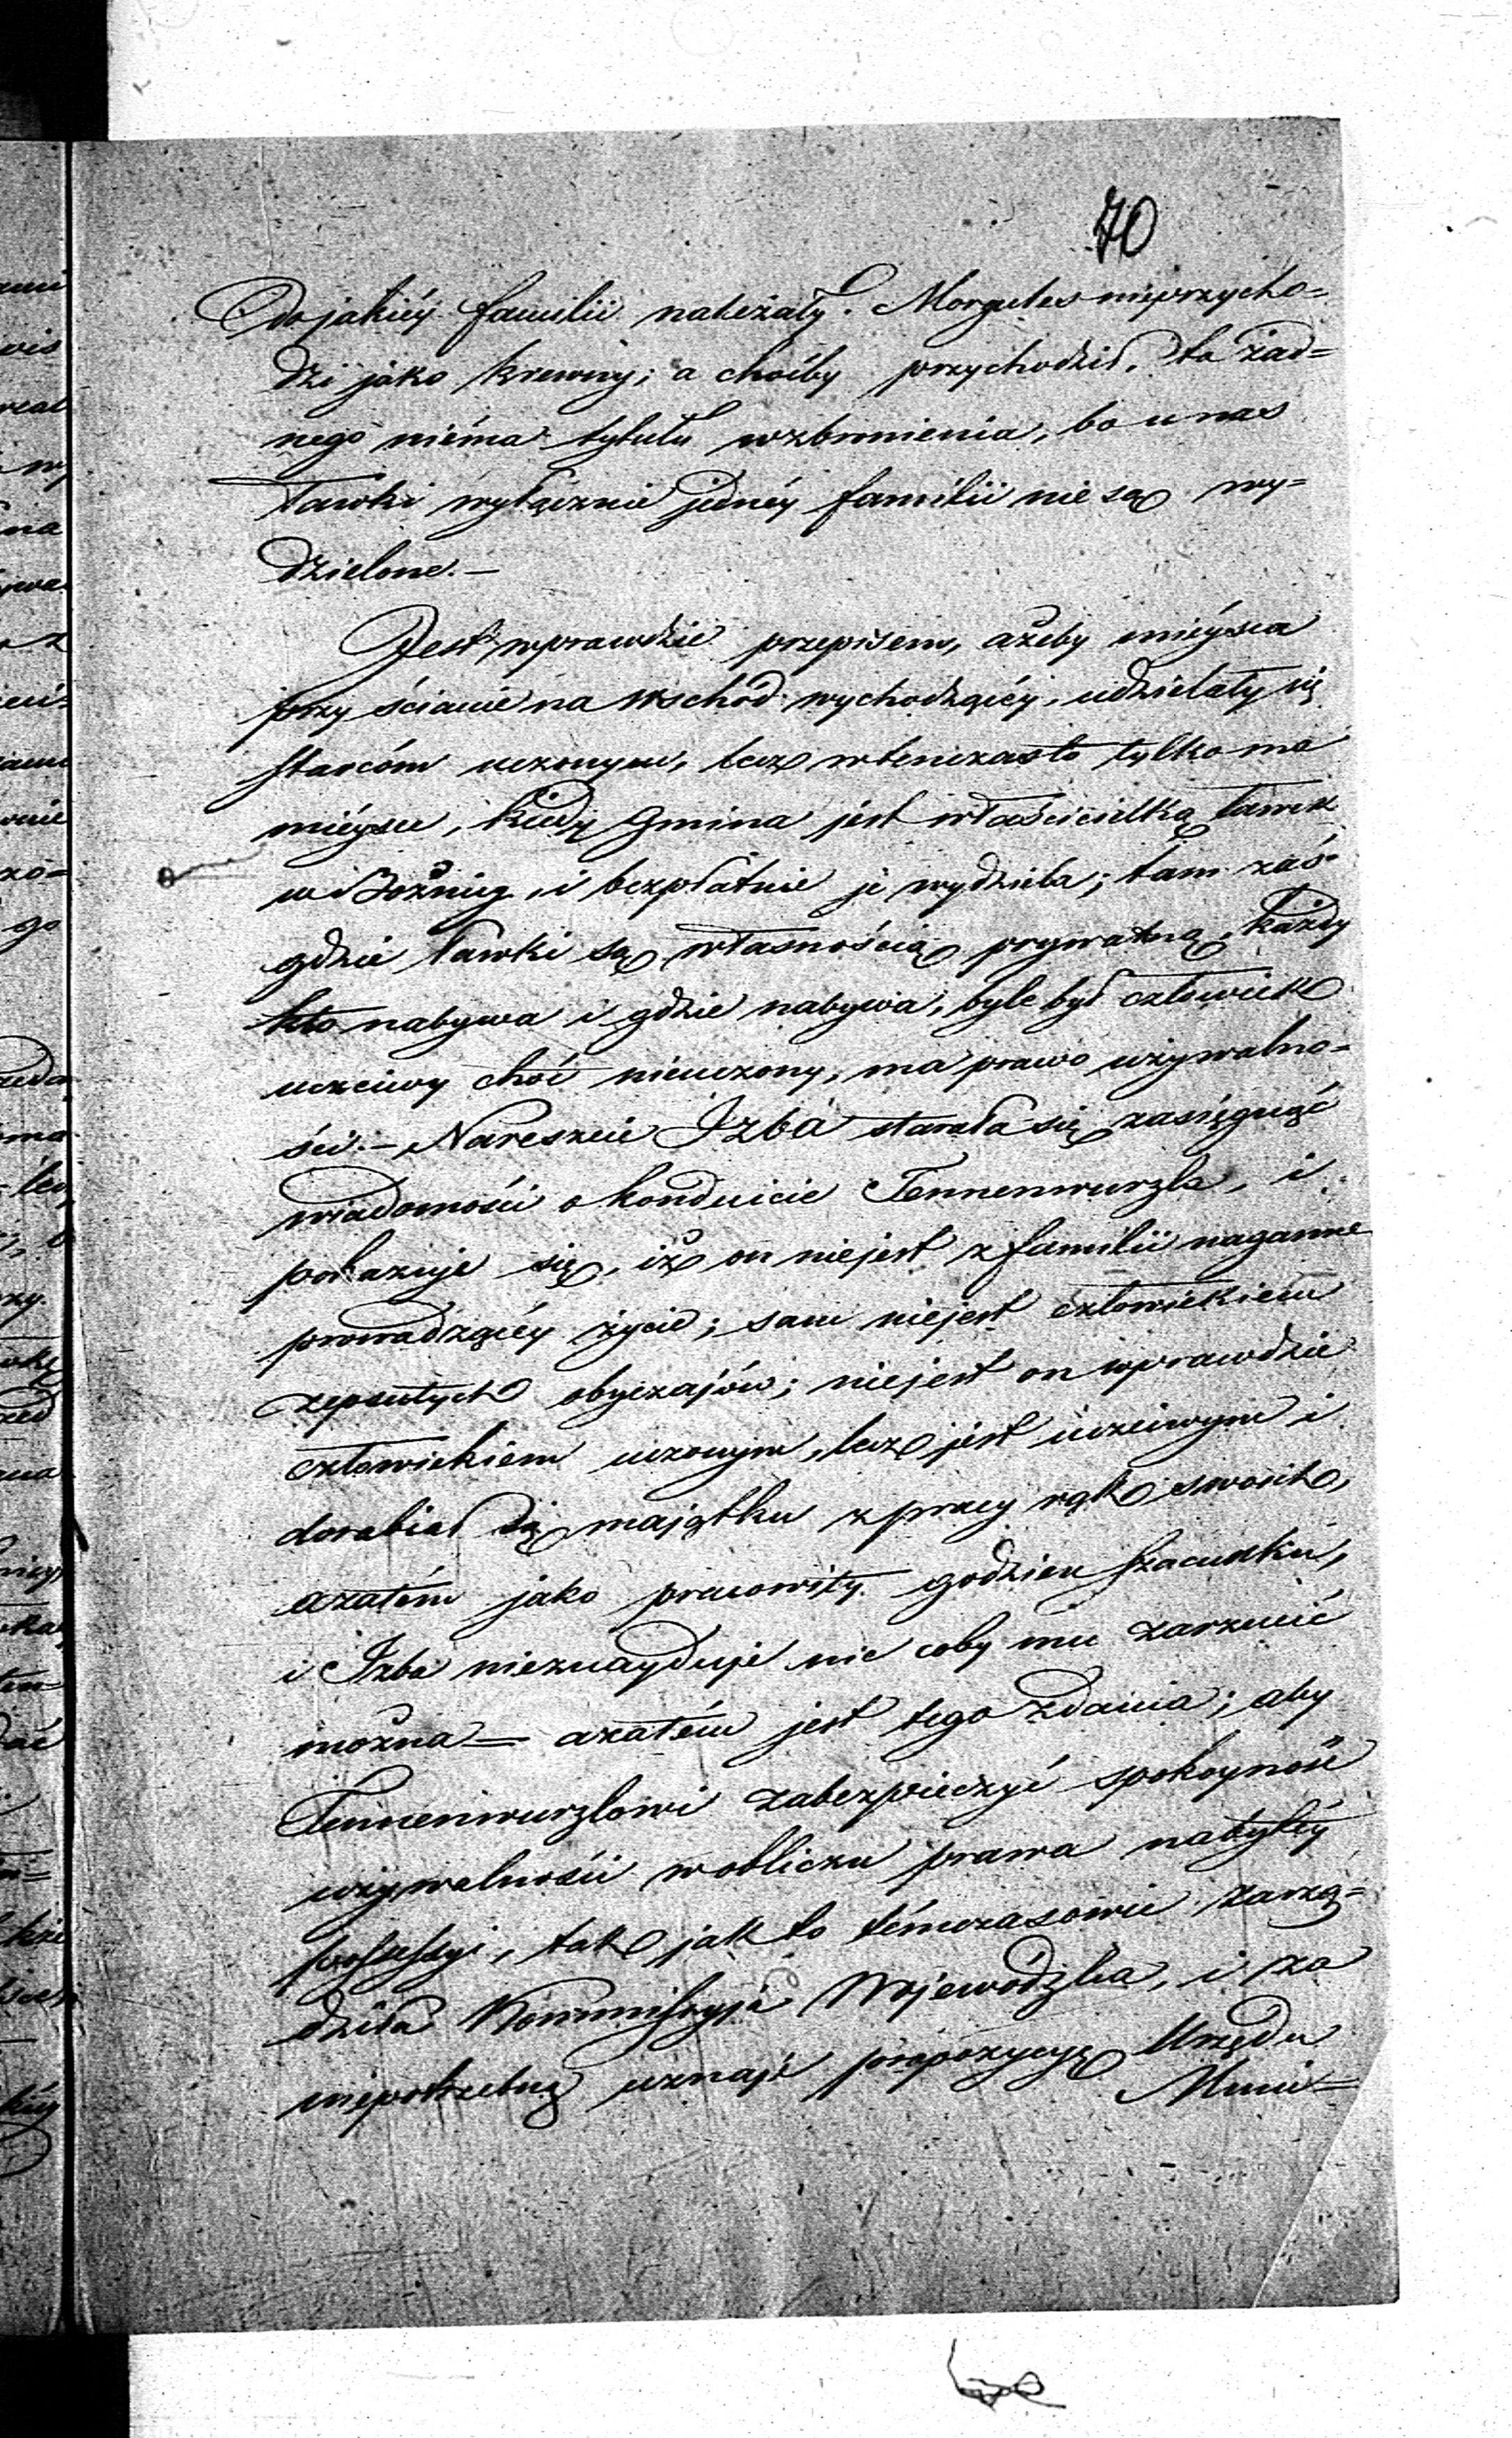 70
do jakiéy familii należały. Morgules nieprzycho=
dzi jako krewny; a choćby przychodził, to żad=
nego niéma tytułu wzbronienia, bo u nas
ławki wyłącznie jednéy familii nie są wy=
dzielone.—
Jest wprawdzie przepisem, ażeby miéysca
przy ścianie na wschód wychodzącéy, udzielały się
starcóm uczonym, lecz wtenczas to tylko ma
miéysce, kiedy Gmina jest właścicielką ławek
w Bożnicy i bezpłatnie je wydziela; tam zaś
gdzie ławki są własnością prywatną, każdy
kto nabywa i gdzie nabywa, byle był człowiek
uczciwy choć nieuczony, ma prawo używalno=
ści.— Nareszcie Izba starała się zasięgnąć
wiadomości o konduicie Tennenwurzla, i
pokazuje się, iż on niejest z familii naganne
prowadzącéy życie; sam niejest człowiekiem
zepsutych obyczajów; niejest on wprawdzie
człowiekiem uczonym, lecz jest uczciwym i
dorabiał się majątku z pracy rąk swoich,
azatém jako pracowity godzien szacunku,
i Izba nieznayduje nic coby mu zarzucić
można — azatém jest tego zdania; aby
Tennenwurzlowi zabezpieczyć spokoyność
używalności w obliczu prawa nabytéy
possessyi, tak jak to témczasowie zarzą=
dziła Kommissyja Wojewódzka, i za
niepotrzebną uznaje propozycyę Urzędu
Muni=